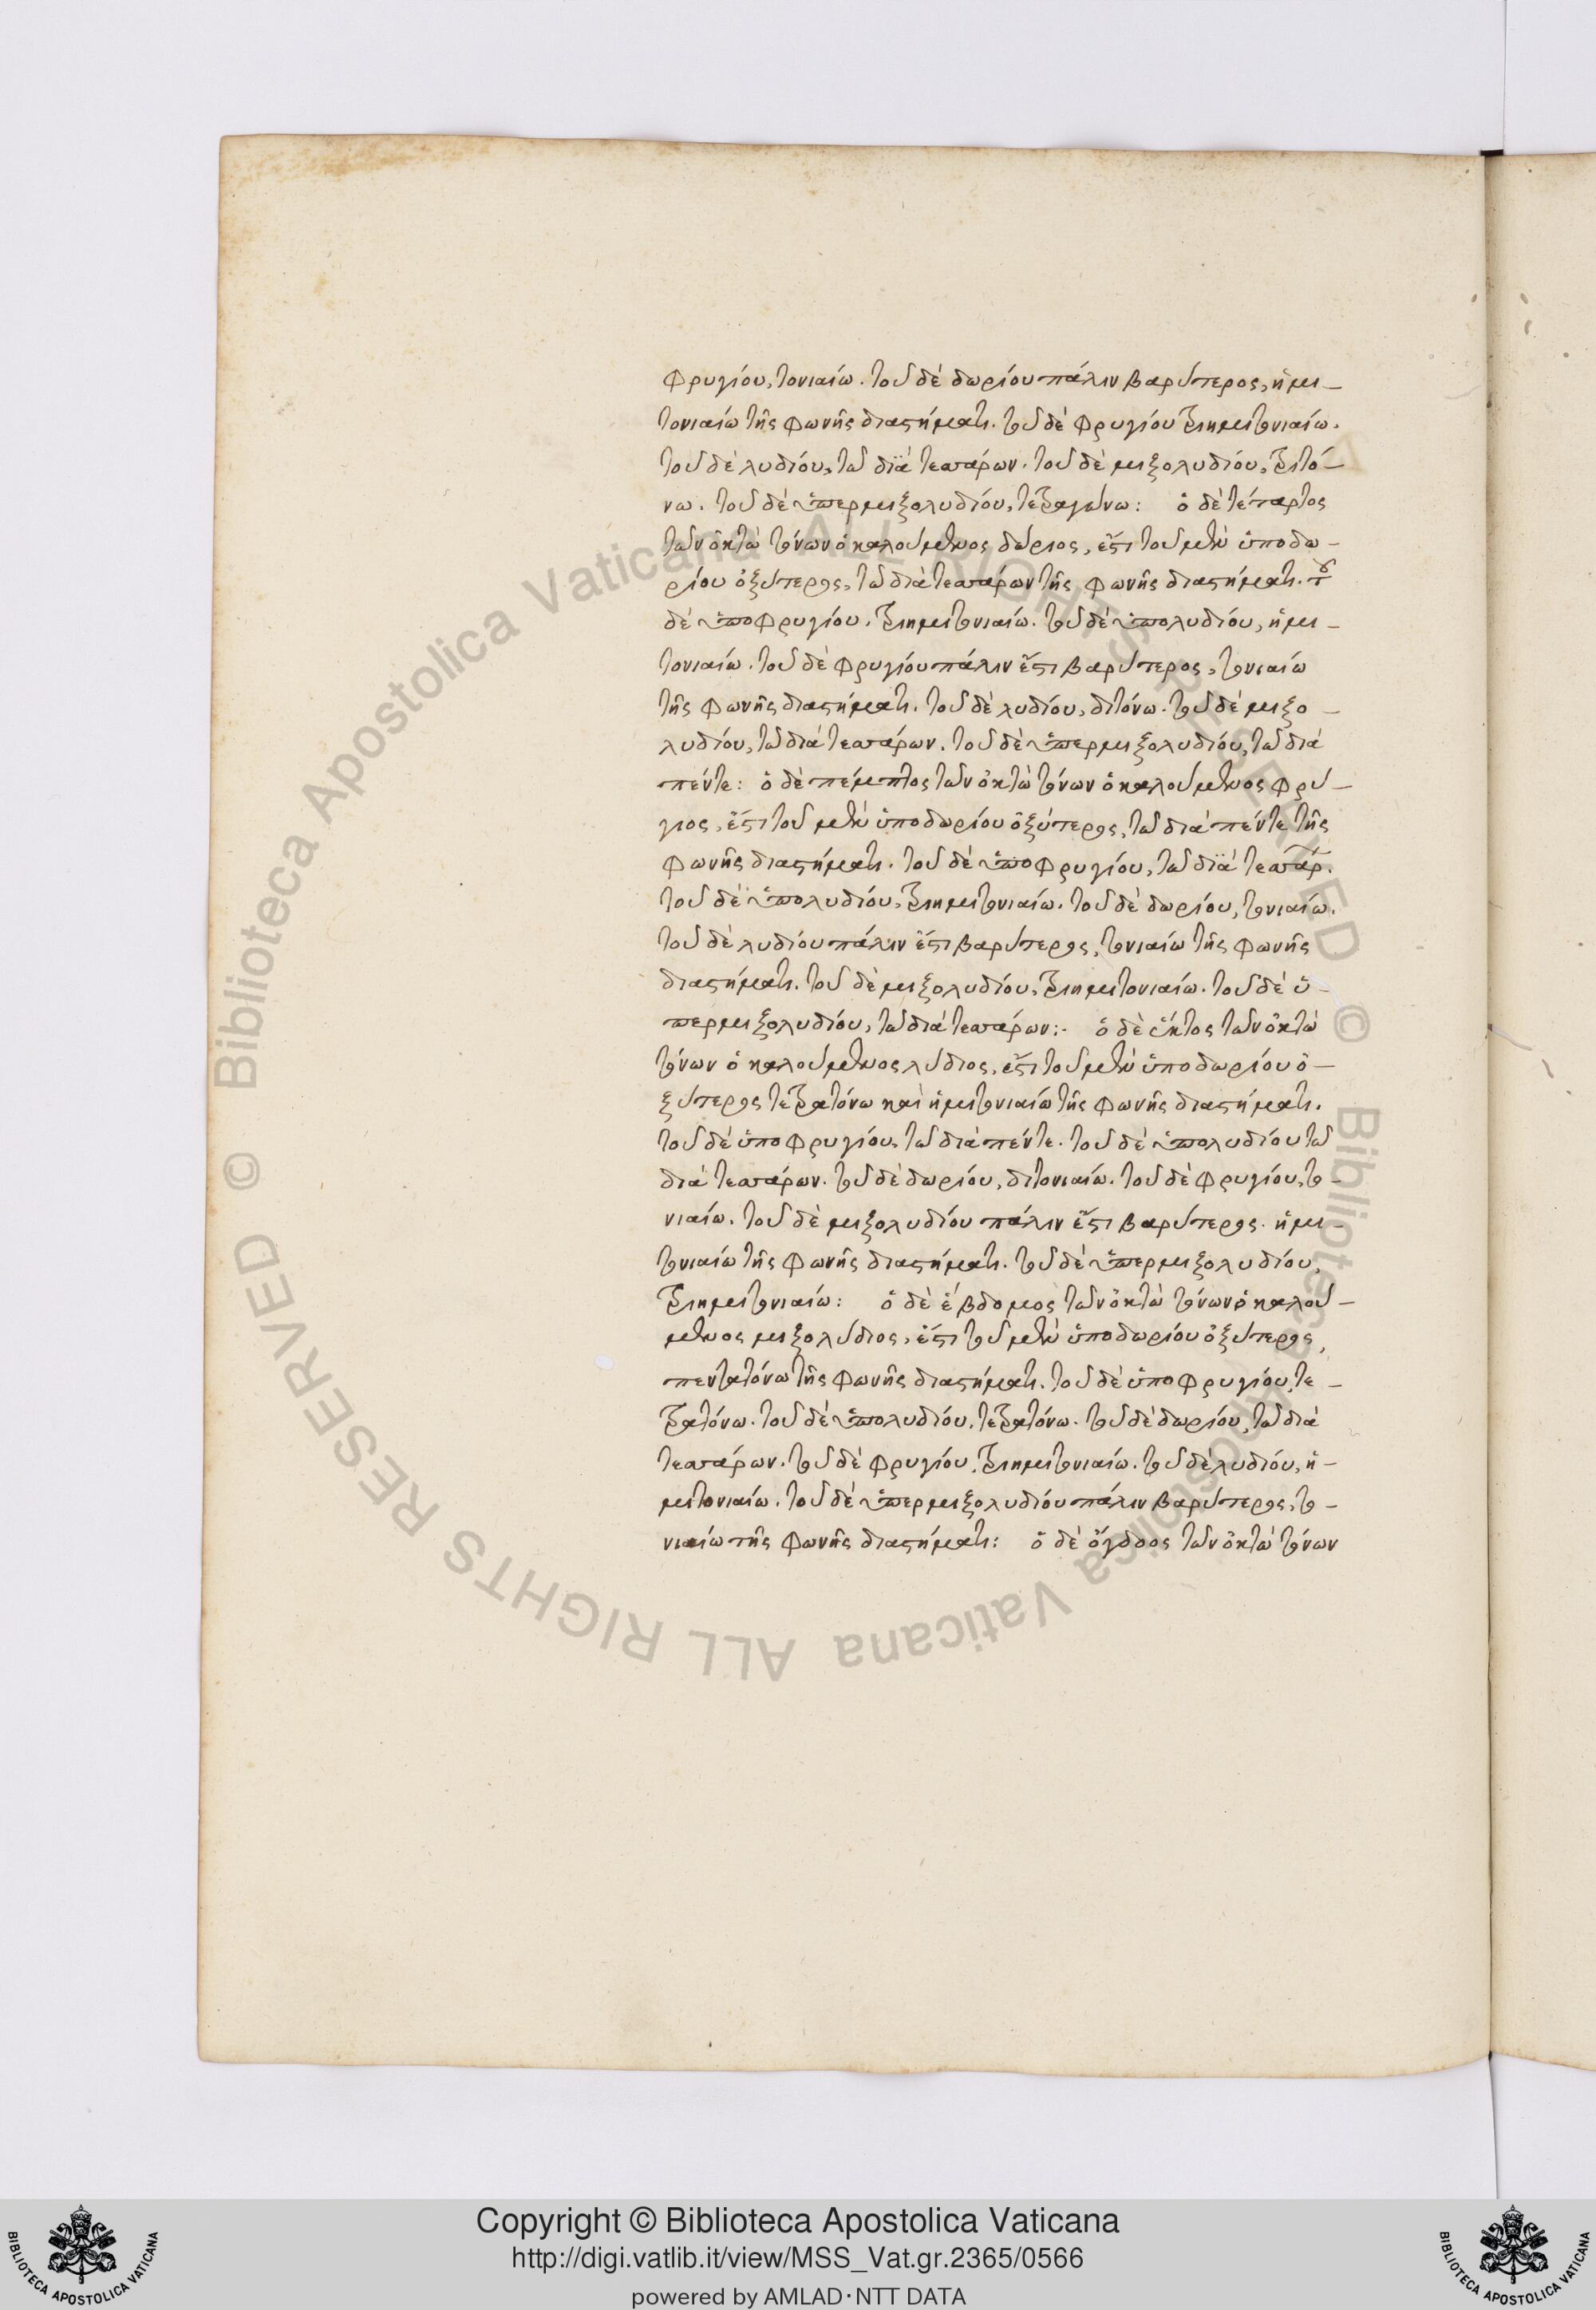 φρυγίου, τονιαίω. τοῦ δὲ δωρίου πάλιν βαρύτερος, ἡμι-
τονιαίω τῆς φωνῆς διαστήματι. τοῦ δὲ φρυγίου τριημιτονιαίω.
τοῦ δὲ λυδίου, τῶ διὰ τεσσάρων. τοῦ δὲ μιξολυδίου, τριτό-
νω. τοῦ δὲ ὑπερμιξολυδίου, τετραγώνω: ὁ δὲ τέταρτος
τῶν ὀκτὼ τόνων ὁ καλούμενος δώριος, ἔστι τοῦ μὲν ὑποδω-
ρίου ὀξύτερος, τῶ διὰ τεσσάρων τῆς φωνῆς διαστήματι. τοῦ
δὲ ὑποφρυγίου, τριημιτονιαίω. τοῦ δὲ ὑπολυδίου, ἡμι-
τονιαίω. τοῦ δὲ φρυγίου πάλιν ἔστι βαρύτερος, τονιαίω
τῆς φωνῆς διαστήματι. τοῦ δὲ λυδίου, διτόνω. τοῦ δὲ μιξο-
λυδίου, τῶ διὰ τεσσάρων. τοῦ δὲ ὑπερμιξολυδίου, τῶ διὰ
πέντε: ὁ δὲ πέμπτος τῶν ὀκτὼ τόνων ὁ καλούμενος φρύ-
γιος, ἔστι τοῦ μὲν ὑποδωρίου ὀξύτερος, τῶ διὰ πέντε τῆς
φωνῆς διαστήματι. τοῦ δὲ ὑποφρυγίου, τῶ διὰ τεσσάρ.
τοῦ δὲ ὑπολυδίου, τριημιτονιαίω. τοῦ δὲ δωρίου, τονιαίω.
τοῦ δὲ λυδίου πάλιν ἔστι βαρύτερος, τονιαίω τῆς φωνῆς
διαστήματι. τοῦ δὲ μιξολυδίου, τριημιτονιαίω. τοῦ δὲ ὑ-
περμιξολυδίου, τῶ διὰ τεσσάρων:- ὁ δὲ ἕκτος τῶν ὀκτὼ
τόνων ὁ καλούμενος λύδιος, ἔστι τοῦ μὲν ὑποδωρίου ὀ-
ξύτερος τετρατόνω καὶ ἡμιτονιαίω τῆς φωνῆς διαστήματι.
τοῦ δὲ ὑποφρυγίου, τῶ διὰ πέντε. τοῦ δὲ ὑπολυδίου τῶ
διὰ τεσσάρων. τοῦ δὲ δωρίου, διτονιαίω. τοῦ δὲ φρυγίου, το-
νιαίω. τοῦ δὲ μιξολυδίου πάλιν ἔστι βαρύτερος. ἡμι-
τονιαίω τῆς φωνῆς διαστήματι. τοῦ δὲ ὑπερμιξολυδίου,
τριημιτονιαίω: ὁ δὲ ἕβδομος τῶν ὀκτὼ τόνων ὁ καλού-
μενος μιξολύδιος, ἔστι τοῦ μὲν ὑποδωρίου ὀξύτερος,
πεντατόνω τῆς φωνῆς διαστήματι. τοῦ δὲ ὑποφρυγίου, τε-
τρατόνω. τοῦ δὲ ὑπολυδίου, τετρατόνω. τοῦ δὲ δωρίου, τῶ διὰ
τεσσάρων. τοῦ δὲ φρυγίου, τριημιτονιαίω. τοῦ δὲ λυδίου, ἡ-
μιτονιαίω. τοῦ δὲ ὑπερμιξολυδίου πάλιν βαρύτερος, το-
νιαίω τῆς φωνῆς διαστήματι: ὁ δὲ ὄγδοος τῶν ὀκτὼ τόνων
© Biblioteca Apostolica Vaticana ALL RIGHTS RESERVED
© Biblioteca Apostolica Vaticana ALL RIGHTS RESERVED
Copyright © Biblioteca Apostolica Vaticana
http://digi.vatlib.it/view/MSS_Vat.gr.2365/0566
powered by AMLAD·NTT DATA
BIBLIOTECA APOSTOLICA VATICANA
BIBLIOTECA APOSTOLICA VATICANA